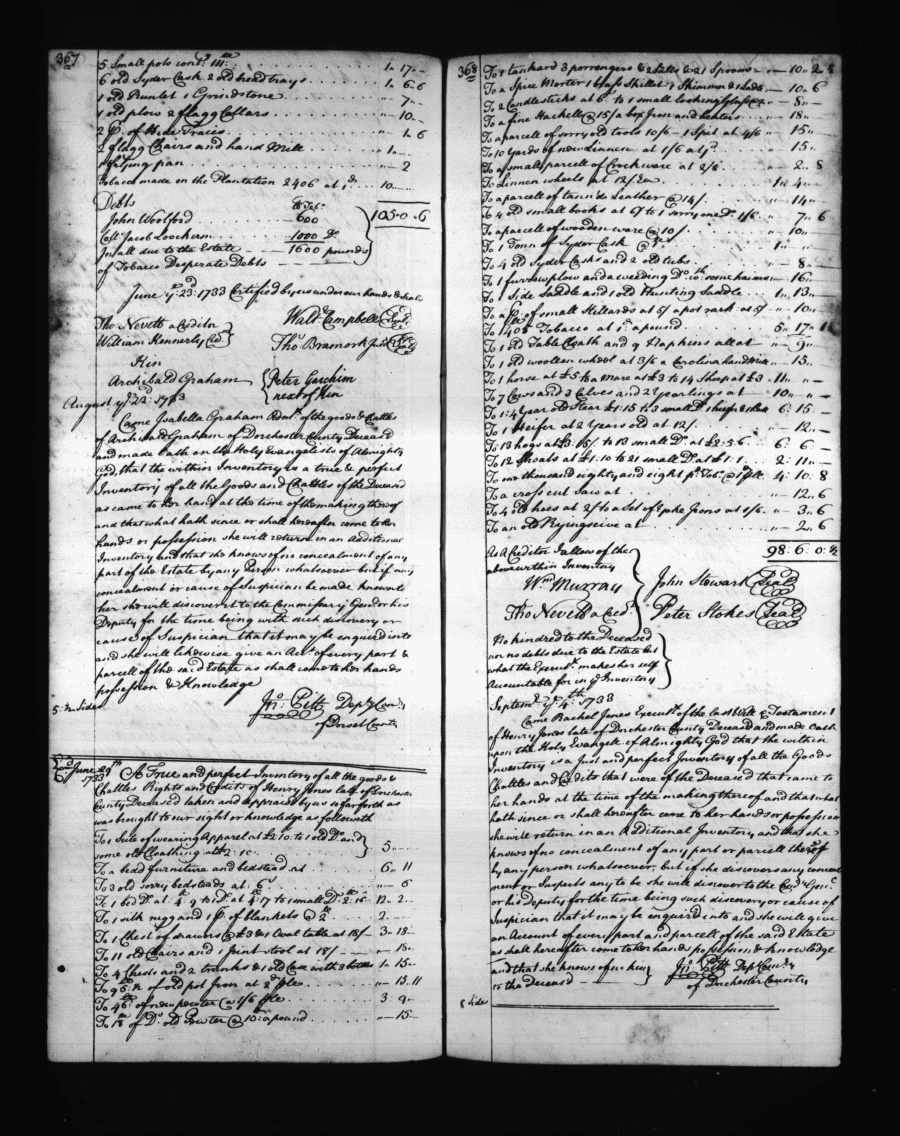 367
5 Small pots cont.g 111.lb . . . 1 " 17 " –
6 old Syder Cask 2 old bread trays . . . 1 " 6 " 6
1 old Runlet 1 Grindstone . . . " 7 " –
1 old plow 2 flagg Collars . . . " 10 " –
2 p.r of Hide Traces . . . " 1 " 6
2 flagg Chairs and hand Mill . . . 1 " –
1 frying pan . . . " – 2
Tobacco made on the Plantation 2406 at 1.d 10 " –
Debts
lb Tob.o
John Woolford 600
Cap.t Jacob Loockerm 1000 D.o
In all due to the Estate 1600 pounds
of Tobacco Desperate Debts
105 " 0 " 6
June y.e 23.d 1733 Certified by us under our hands & Seals
Tho. Nevett a Creditor Walt. Campbell Seal
William Kennerly C.d Tho.s Bramock Jun.r Seal
Kin
Archibald Graham Peter Garchim
next of Kin
August y.e 22.d 1733
Came Isabella Graham Adm.x of the goods & Chattles
of Archibald Graham of Dorchester County Deceased
and made Oath on the Holy Evangelists of Almighty
God, that the within Inventory is a true & perfect
Inventory of all the Goods and Chattles of the Deceased
as came to her hand at the time of the making thereof
and that what hath since or shall hereafter come to her
hands or possession she will return in an Additional
Inventory and that she knows of no concealment of any
part of the Estate by any Person whatsoever but if any
concealment or cause of Suspicion be made known to
her she will discover it to the Commissary Gen.l or his
Deputy for the time being with such discovery or
cause of Suspicion that it may be enquired into
and she will likewise give an Acc.t of every part &
parcell of the said Estate as shall come to her hands
possession & Knowledge
5:½ Sides
Jn.o Pitt Dep.ty Com.ry
of Dorset County
June 29th 1733
A True and perfect Inventory of all the goods &
Chattles Rights and Credits of Henry Jones late of Dorchester
County Deceased taken and appraised by us as far forth as
was brought to our sight or knowledge as followeth
To 1 Sute of wearing Apparel at £2:10. to 1 old D.o and
some old Cloathing at £2:10. 5 " –
To a bedd furniture and bedstead at . . . 6 " 11
To 3 old sorry bedsteads at : 6.d . . . " – 6
To 1 bed D.o at £4. 9 to 1 D.o at £4:17 to 1 small D.o £2:16 12 " 2 " –
To 1 with rugg and 1 p.r of blankets @ £2 . . . 2 " –
To 1 Chest of drawers @ £3 & 1 Oval table at 18/– 3 " 18 –
To 11 old Chairs and 1 Joint stool at 15/– " 15 –
To 4 Chests and 2 trunks & 1 old Case with 3 bottles 1 " 15 –
To 95:½ of old pot Iron at 2.d p lb . . . " 15 " 11
To 46.lb of new pewter @ 1/6 p lb . . . 3 " 9 –
To 18.lb of D.o old Pewter @ 10.d a pound . . . " 15 –
368
To 1 tankard 3 porrengers & 2 Salts & 21 Spoons – 10 " 2
To a Spice Morter 1 brass Skillet 1 Skimmer & Ladle – 10 " 6
To 2 Candlesticks at 6.d to 1 small looking glass @ – 8 " –
To a fine Hackell @ 15/ a box Iron and heaters . . . 18 "
To a parcell of sorry old tools 10/6 – 1 Spit at 4/6 – 15 "
To 10 Yards of new Linnen at 1/6 a y.d . . . 15 "
To a small parcell of Crockware at 2/8 . . . 2 " 8
To Linnen wheels at 12/ Ea . . . 1 " 4 " –
To a parcell of tann'd Leather @ 14/ . . . 14 "
To 4 old small books at 6/ to 1 sorry one D.o 1/6 " 7 " 6
To a parcell of wooden ware @ 10/ . . . 10 "
To 1 Tonn of Syder Cask @ £1 . . . 1 "
To 4 old Syder Casks and 2 old tubs . . . 8 " –
To 1 furrow plow and a weeding D.o with some harness – 16 "
To 1 Side Saddle and 1 old Hunting Saddle . . . 1 " 13 "
To a p.r of small Stillards at 5/ a pot rack at 5/ – 10 "
To 1408 Tobacco at 1.d a pound . . . 5 " 17 " 4
To 1 old Table Cloath and 9 Napkins all at – 9 "
To 1 old woollen wheel at 3/6 a Carolina hand – 15 "
To 1 horse at £5 to a Mare at £3 to 14 Sheep at £3 – 11 "
To 7 Cows and 3 Calves and 2 Yearlings at 10 "
To 1:4 year old Stear £1:15 to 3 small D.o 6 " 15 "
To 1 Heifer at 2 Years old at 12/. . . . 12 "
To 13 hogs at £3:15/ to 13 small D.o at £2:5:6 . 6 : 6
To 12 Shoats at £1:10 to 21 small D.o at £1:1 . . . 2 : 11 "
To one thousand eighty and eight p.d Tob.o @ 1.d p lb 4 : 10 . 8
To a cross cut saw at . . . 12 " 6
To 4 old hoes at 2/ to a Set of Irons at 1/6 . 3 " 6
To an old Rying seive at . . . 2 " 6
98 : 6 : 0:½
As a Creditor I allow of the
above within Inventory
Wm Murray John Stewart Seal
Tho Nevett a Cred.r Peter Stokes Seal
No kindred to the Deceased
nor no debts due to the Estate but
what the Execut.x makes her self
Accountable for in y.e Inventory
Septem.r y.e 4.th 1733
Came Rachel Jones Execut.x of the last Will & Testament
of Henry Jones late of Dorchester County Deceased and made Oath
upon the Holy Evangels of Almighty God that the within
Inventory is a Just and perfect Inventory of all the Goods
Chattles and Credits that were of the Deceased that came to
her hands at the time of the making thereof and that what
hath since or shall hereafter come to her hands or possession
she will return in an Additional Inventory and that she
knows of no concealment of any part or parcell thereof
by any person whatsoever, but if she discovers any conceal
ment or Suspects any to be she will discover to the Com.y Gen.l
or his Deputy for the time being such discovery or cause of
Suspicion that it may be enquired into and she will give
an Account of every part and parcell of the said Estate
as shall hereafter come to her hands possession & knowledge
and that she knows of no kin
to the deceased
Jn.o Pitt Dep.t Com.ry
of Dorchester County
5 Sides